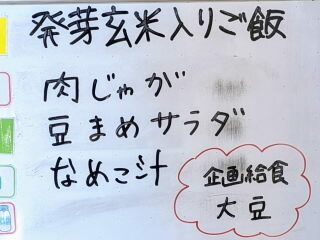 発芽玄米入りご飯
肉じゃが
豆まめサラダ
なめこ汁
企画給食
大豆